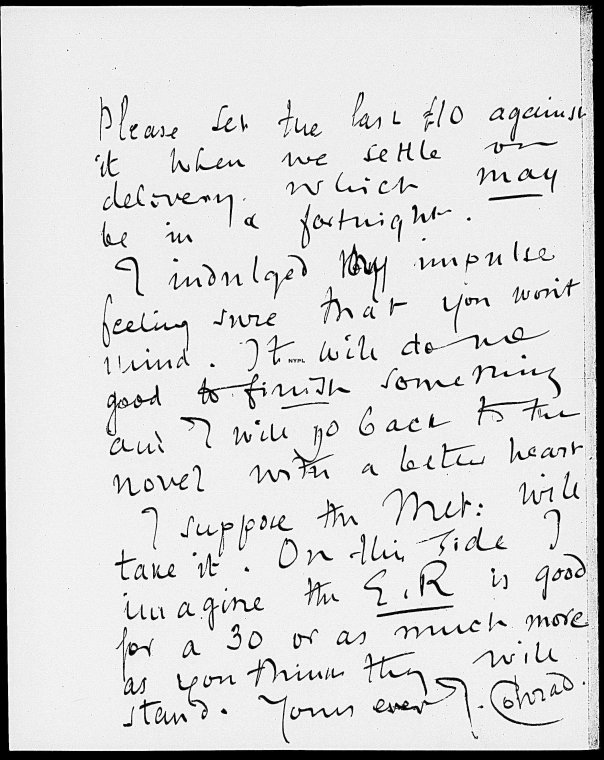 Please set the last £10 against
it when we settle on
delivery. Which may
be in a fortnight.
I indulged my impulse
feeling sure that you won't
mind. It will do me
NYPL
good to finish something
and I will go back to the
novel with a better heart.
I suppose the Met: will
take it. On this side I
imagine the E.R is good
for a 30 or as much more
as you think they will
stand. Yours ever J. Conrad.